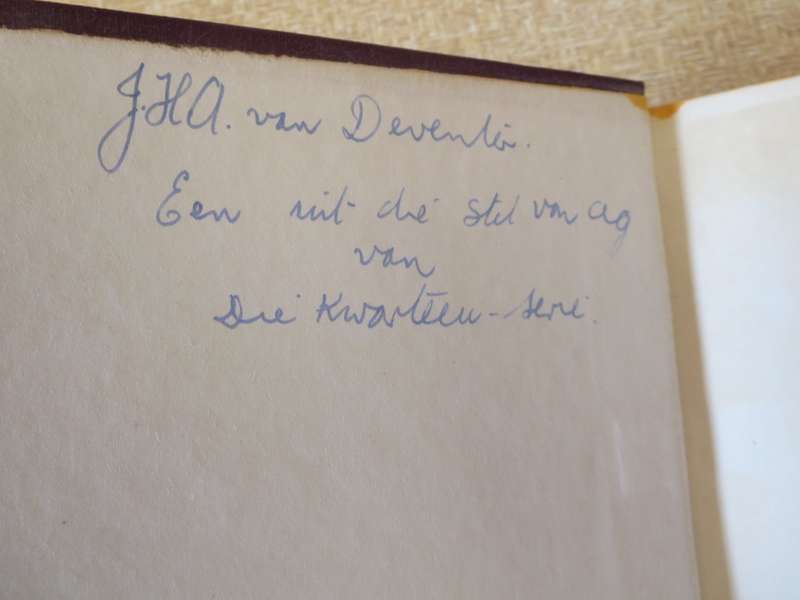 J.H.A. van Deventer.
Een uit die stel van ag
van
Die Kwarteeu-serie.